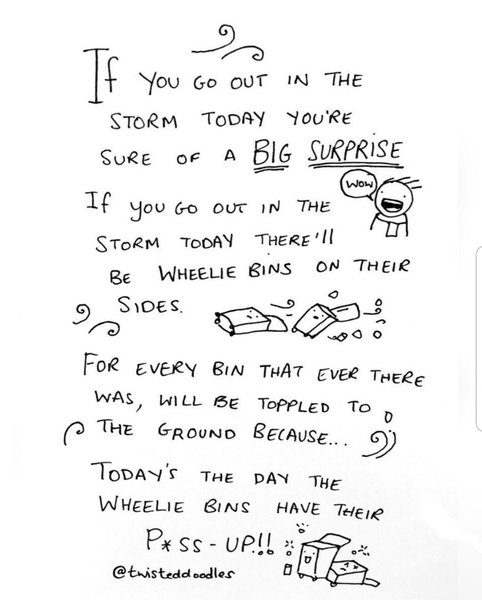 If YOU GO OUT IN THE
STORM TODAY YOU'RE
SURE OF A BIG SURPRISE
WOW
If you GO OUT IN THE
STORM TODAY THERE'll
BE WHEELIE BINS ON THEIR
SIDES.
FOR EVERY BIN THAT EVER THERE
WAS, WILL BE TOPPLED TO
THE GROUND BECAUSE...
TODAY'S THE DAY THE
WHEELIE BINS HAVE THEIR
P*SS-UP!!!
@twisteddoodles